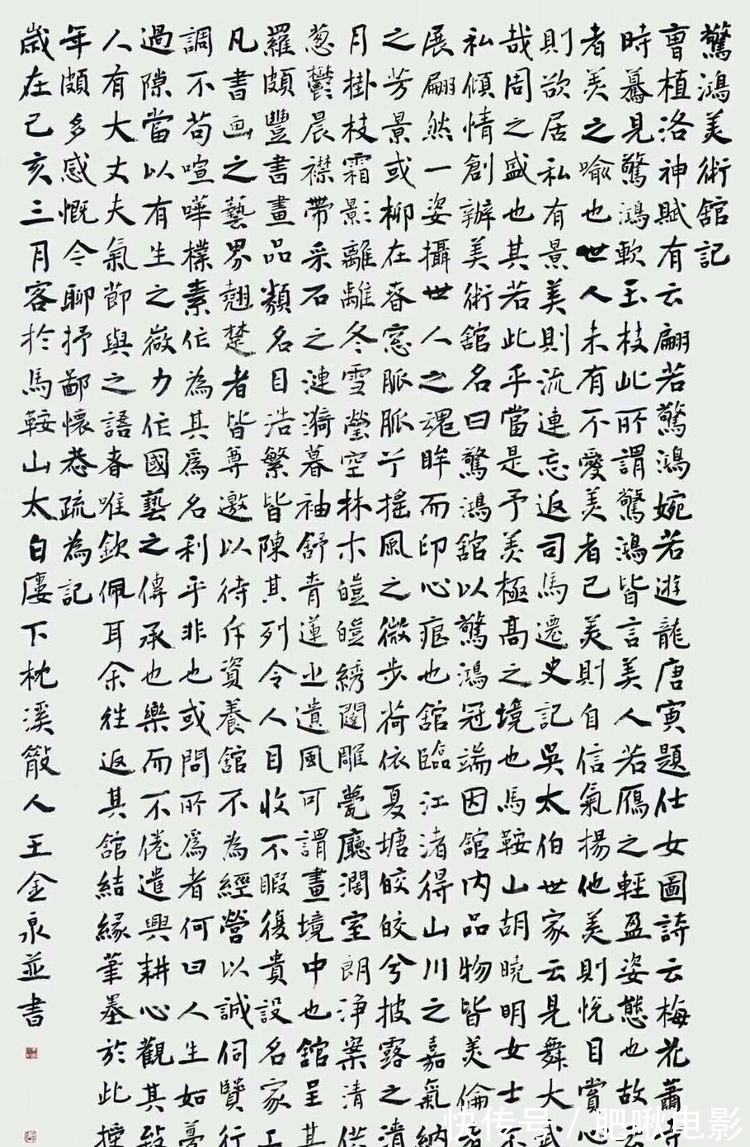 驚鴻美術舘記
曹植洛神賦有云翩若驚鴻婉若遊龍唐寅題仕女圖詩云梅花蕭
時驀見驚鴻軟玉枝此所謂驚鴻皆言美人若鴈之輕盈姿態也故
者美之喻也世人未有不愛美者己美則自信氣揚他美則悅目賞心
則欲居私有景美則流連忘返司馬遷史記吳太伯世家云見舞大武
哉周之盛也其若此乎當是予美極高之境也馬鞍山胡曉明女士
私傾情創辦美術舘名曰驚鴻舘以驚鴻冠端因舘内品物皆美倫
展翩然一姿攝世人之魂眸而印心痕也舘臨江渚得山川之嘉氣納
之芳景或柳在春窓脈脈兮摇風之微步荷依夏塘皎皎兮披露之清
月掛枝霜影離離冬雪瑩空林木皚皚綉闥雕甍廳濶室朗浄案清供
葱鬱晨襟帶采石之漣漪暮袖舒青蓮之遺風可謂畫境中也舘呈其
羅頗豐書畫品類名目浩繁皆陳其列令人目收不暇復貴設名家工
凡書画之藝界翹楚者皆尊邀以待斥資養舘不為經營以誠伺贊行
調不苟喧嘩樸素作為其爲名利乎非也或問所爲者何曰人生如
過隙當以有生之歲力作國藝之傳承也樂而不倦遣興耕心觀其
人有大丈夫氣節與之語者唯欽佩耳余往返其舘結緣筆墨於此
年頗多感慨今聊抒鄙懷恭疏為記
歲在己亥三月客於馬鞍山太白廔下枕溪散人王金泉並書
快传号／肥啾电影